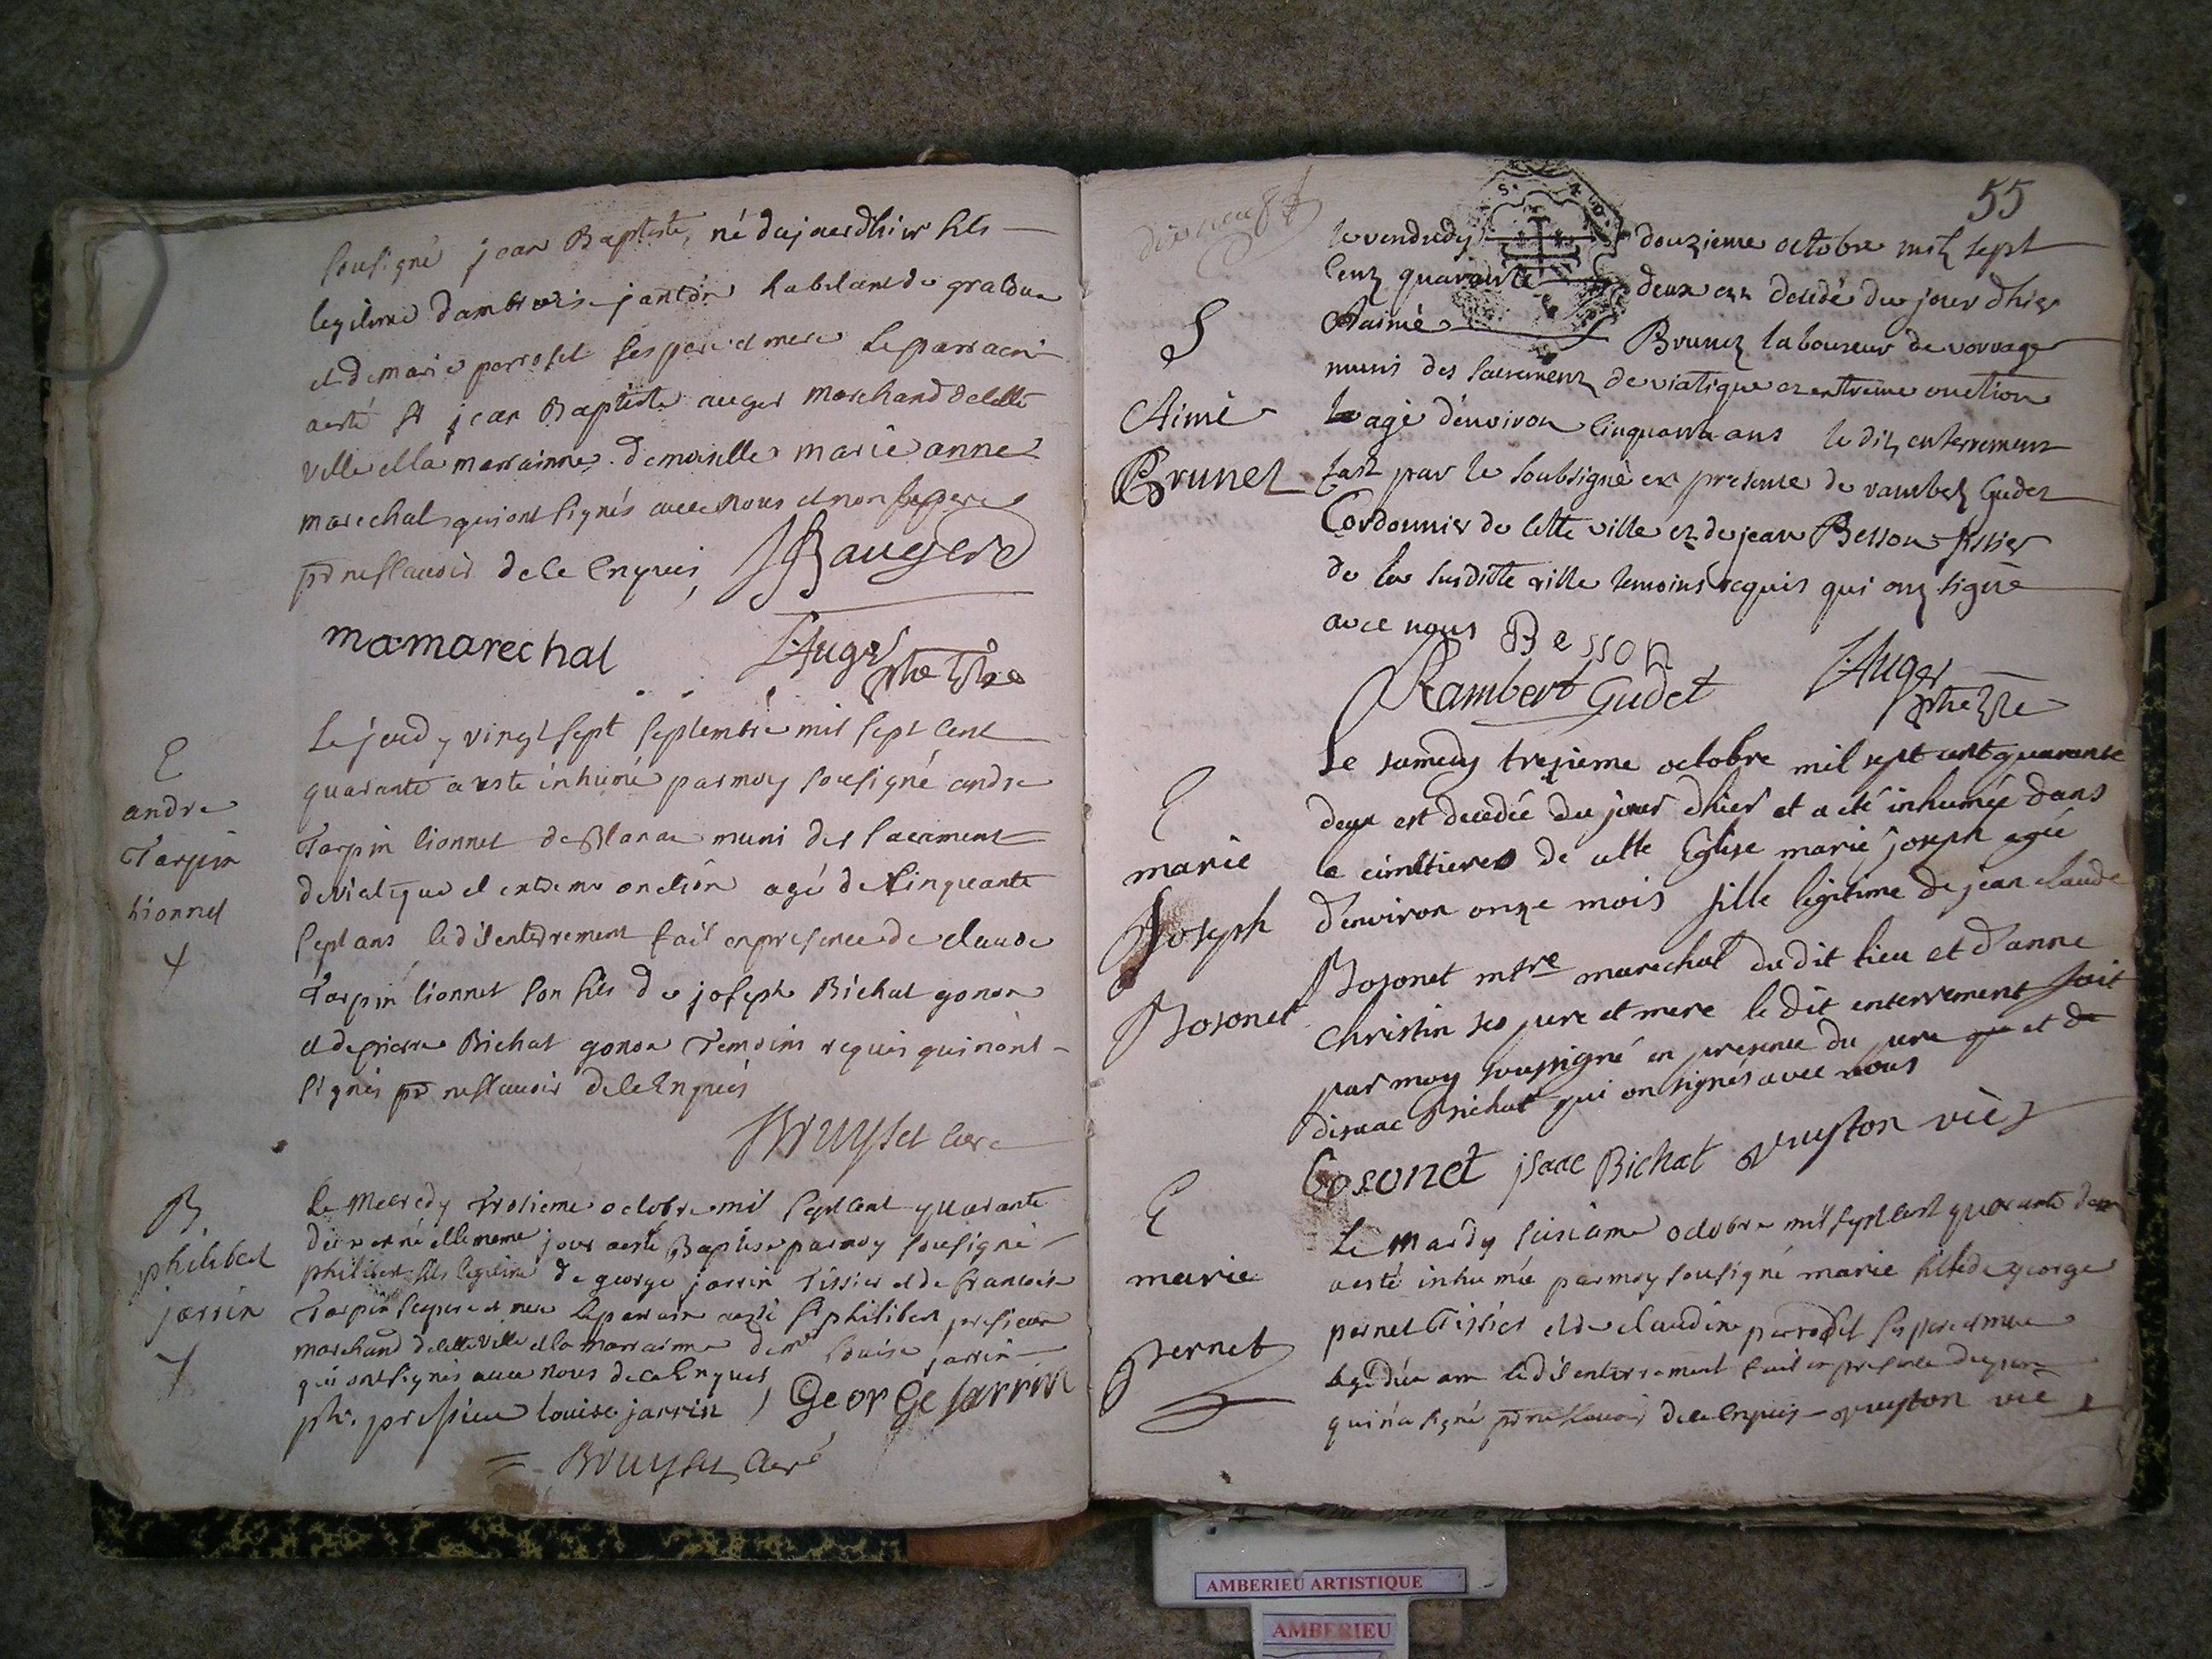 sousigné jean Baptiste, né dujourdhier fils
legitime dambroise jantdin habitant de
et de marie perroset ses pere et mere Le parrain
aesté St jean Baptiste auger marchand decette
ville et la marrainne demoiselle marie anne
marechal qui ont signés avec nous et non le pere
pr ne scavoir de ce Enquis JB augerd
ma marechal JAuger
E
andre
Tarpin
lionnet
Le jeudy vingt sept septembre mil sept cent
quarante a esté inhumé par moy sousigné andre
Tarpin lionnet de muni des sacrement
deviatique et extreme onction agé de cinquante
sept ans le dit enterrement fait en presence de claude
Tarpin lionnet son fils de joseph Bichat gonon
et de pierre Bichat gonon Temoins requis qui nont
signés pr ne scavoir de ce Enquis
Bruyset curé
B.
philibert
jarrin
Le Mecredy Troisieme octobre mil sept cent quarante
deux et né ellememe jour aesté Baptisé par moy sousigné
philibert fils legitime de george jarrin Tissier et de francoise
Tarpin ses pere et mere Le parrain aesté St philibert
marchand de cette ville et la marrainne demlle Louise jarrin
qui ont signés avec nous de ce Enquis
louise jarrin George Jarrin
Bruyset curé
55
S
Aimé
Brunet
le vendredy douzieme octobre mil sept
cent quarante deux est decedé du jour dhier
Aaimé Brunet laboureur de vorvage
munis des sacrement de viatique et extreme onction
agé d'environ cinquante ans le dit enterrement
fait par le soubsigné en presence de rambert Gudet
Cordonnier de cette ville et de jean Besson tissier
de la susditte ville temoins requis qui ont signé
avec nous Besson
Rambert Gudet JAuger
E
marie
Joseph
Bosonet
Le samedy trezieme octobre mil sept cent quarante
deux est decedée du jour dhier et a eté inhumée dans
le cimetiere de cette Eglise marie joseph agée
d'environ onze mois fille legitime de jean claude
Bosonet mtre marechal du dit lieu et d'anne
Christin ses pere et mere le dit enterrement fait
par moy soussigné en presence du pere et de
disaac Bichat qui on signés avec nous
Bosonet jsaac Bichat vuyton
E
marie
pernet
Le mardy seisieme octobre mil sept cent quarante deux
aesté inhumée par moy sousigné marie fille de george
pernet Tissier et de claudine perrodet ses pere et mere
agé dun an le dit enterrement fait en presence du pere
qui n'a signé pr ne scavoir de ce Enquis vuyton
AMBERIEU ARTISTIQUE
AMBERIEU